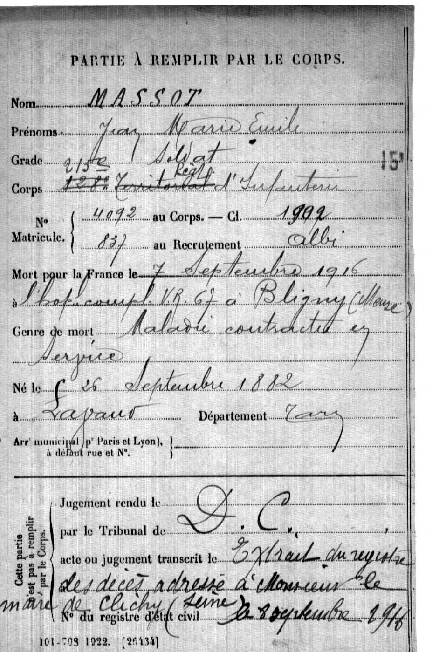 PARTIE À REMPLIR PAR LE CORPS.
Nom MASSOT
Prénoms Jean Marie Emile
Grade Soldat
15e
215e Regt
Corps 128e Territorial d'Infanterie
No Matricule. { 4092 au Corps. — Cl. 1902
837 au Recrutement Albi
Mort pour la France le 7 Septembre 1916
à l'hop. compl. V.R. 67 à Bligny (Meuse)
Genre de mort Maladie contractée en
service
Né le 26 Septembre 1882
à Département Tarn
Arrt municipal (pr Paris et Lyon),
à défaut rue et No.
Cette partie n'est pas à remplir par le Corps.
Jugement rendu le
par le Tribunal de D. C.
acte ou jugement transcrit le Extrait du registre
des decès adressé à Monsieur le
maire de Clichy (Seine)
No du registre d'état civil 2 septembre 1916
101-708 1922. [26434]